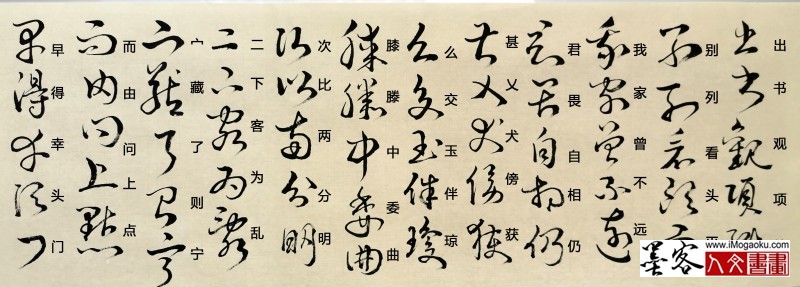 出书观项
别列看头平
我家曾不远
君畏自相仍
甚乂犬傍获
么交玉伴琼
膝滕中委曲
次比两分明
二下客为乱
宀藏了则宁
而由问上点
早得幸头门
www.iMogaoku.com
墨客
人文書畫